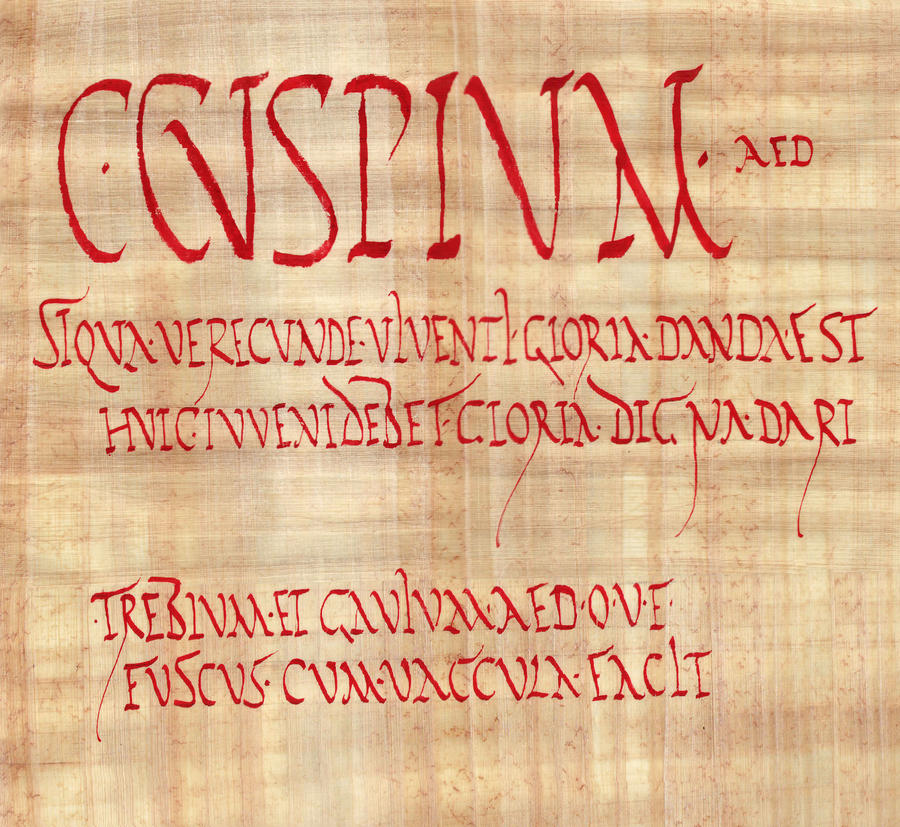 C·CVSPIVM·AED
SIQVA·VERECVNDE·VIVENTI·GLORIA·DANDA EST
HVIC·IVVENI DEBET·GLORIA·DIGNA·DARI
·TREBIVM·ET GAVIVM·AED·O·V·F·
FVSCVS·CVM·VACCVLA·FACIT